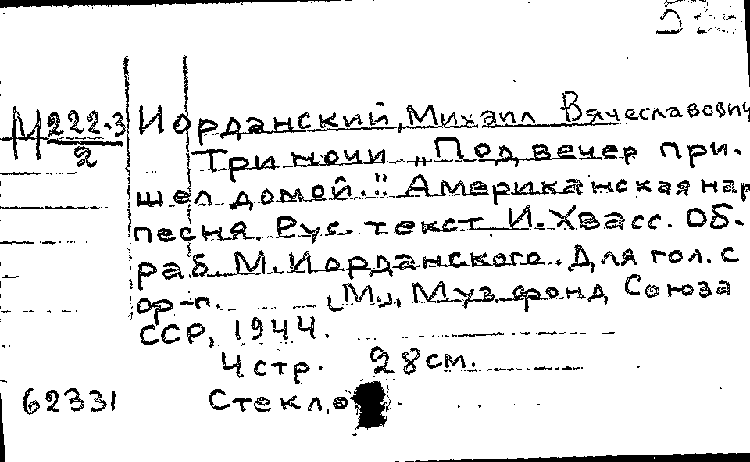 М 222-3
2
Иорданский, Михаил Вячеславович
Три ночи „Под вечер при-
шел домой..." Американская нар
песня. Рус. текст И. Хвасс. Об-
раб. М. Иорданского. Для гол. с
ор-п. [М.], Муз. фонд Союза
ССР, 1944.
4 стр. 28 см.
62331 Стекло